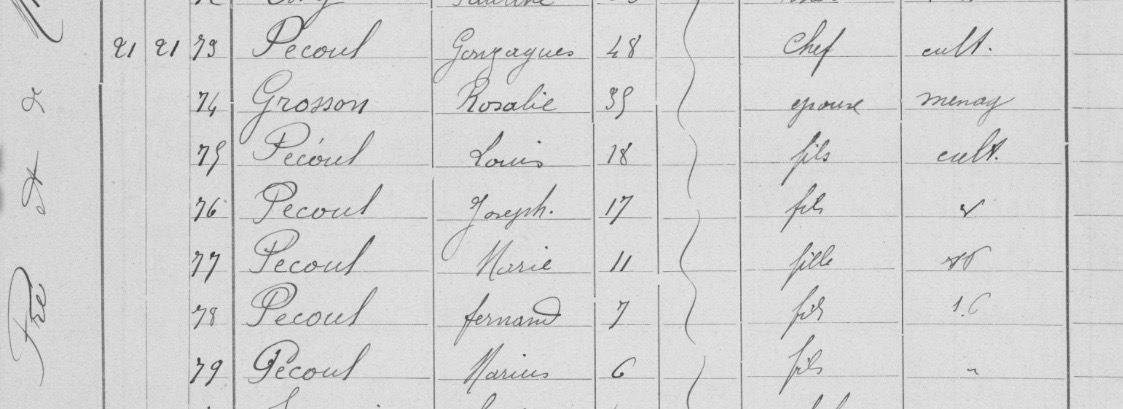 21 21 73 Pecoul Gonzagues 48 Chef cult.
74 Grosson Rosalie 39 epouse menag
75 Pecoul Louis 18 fils cult.
76 Pecoul Joseph. 17 fils
77 Pecoul Marie 11 fille
78 Pecoul fernand 7 fils
79 Pecoul Marius 6 fils "